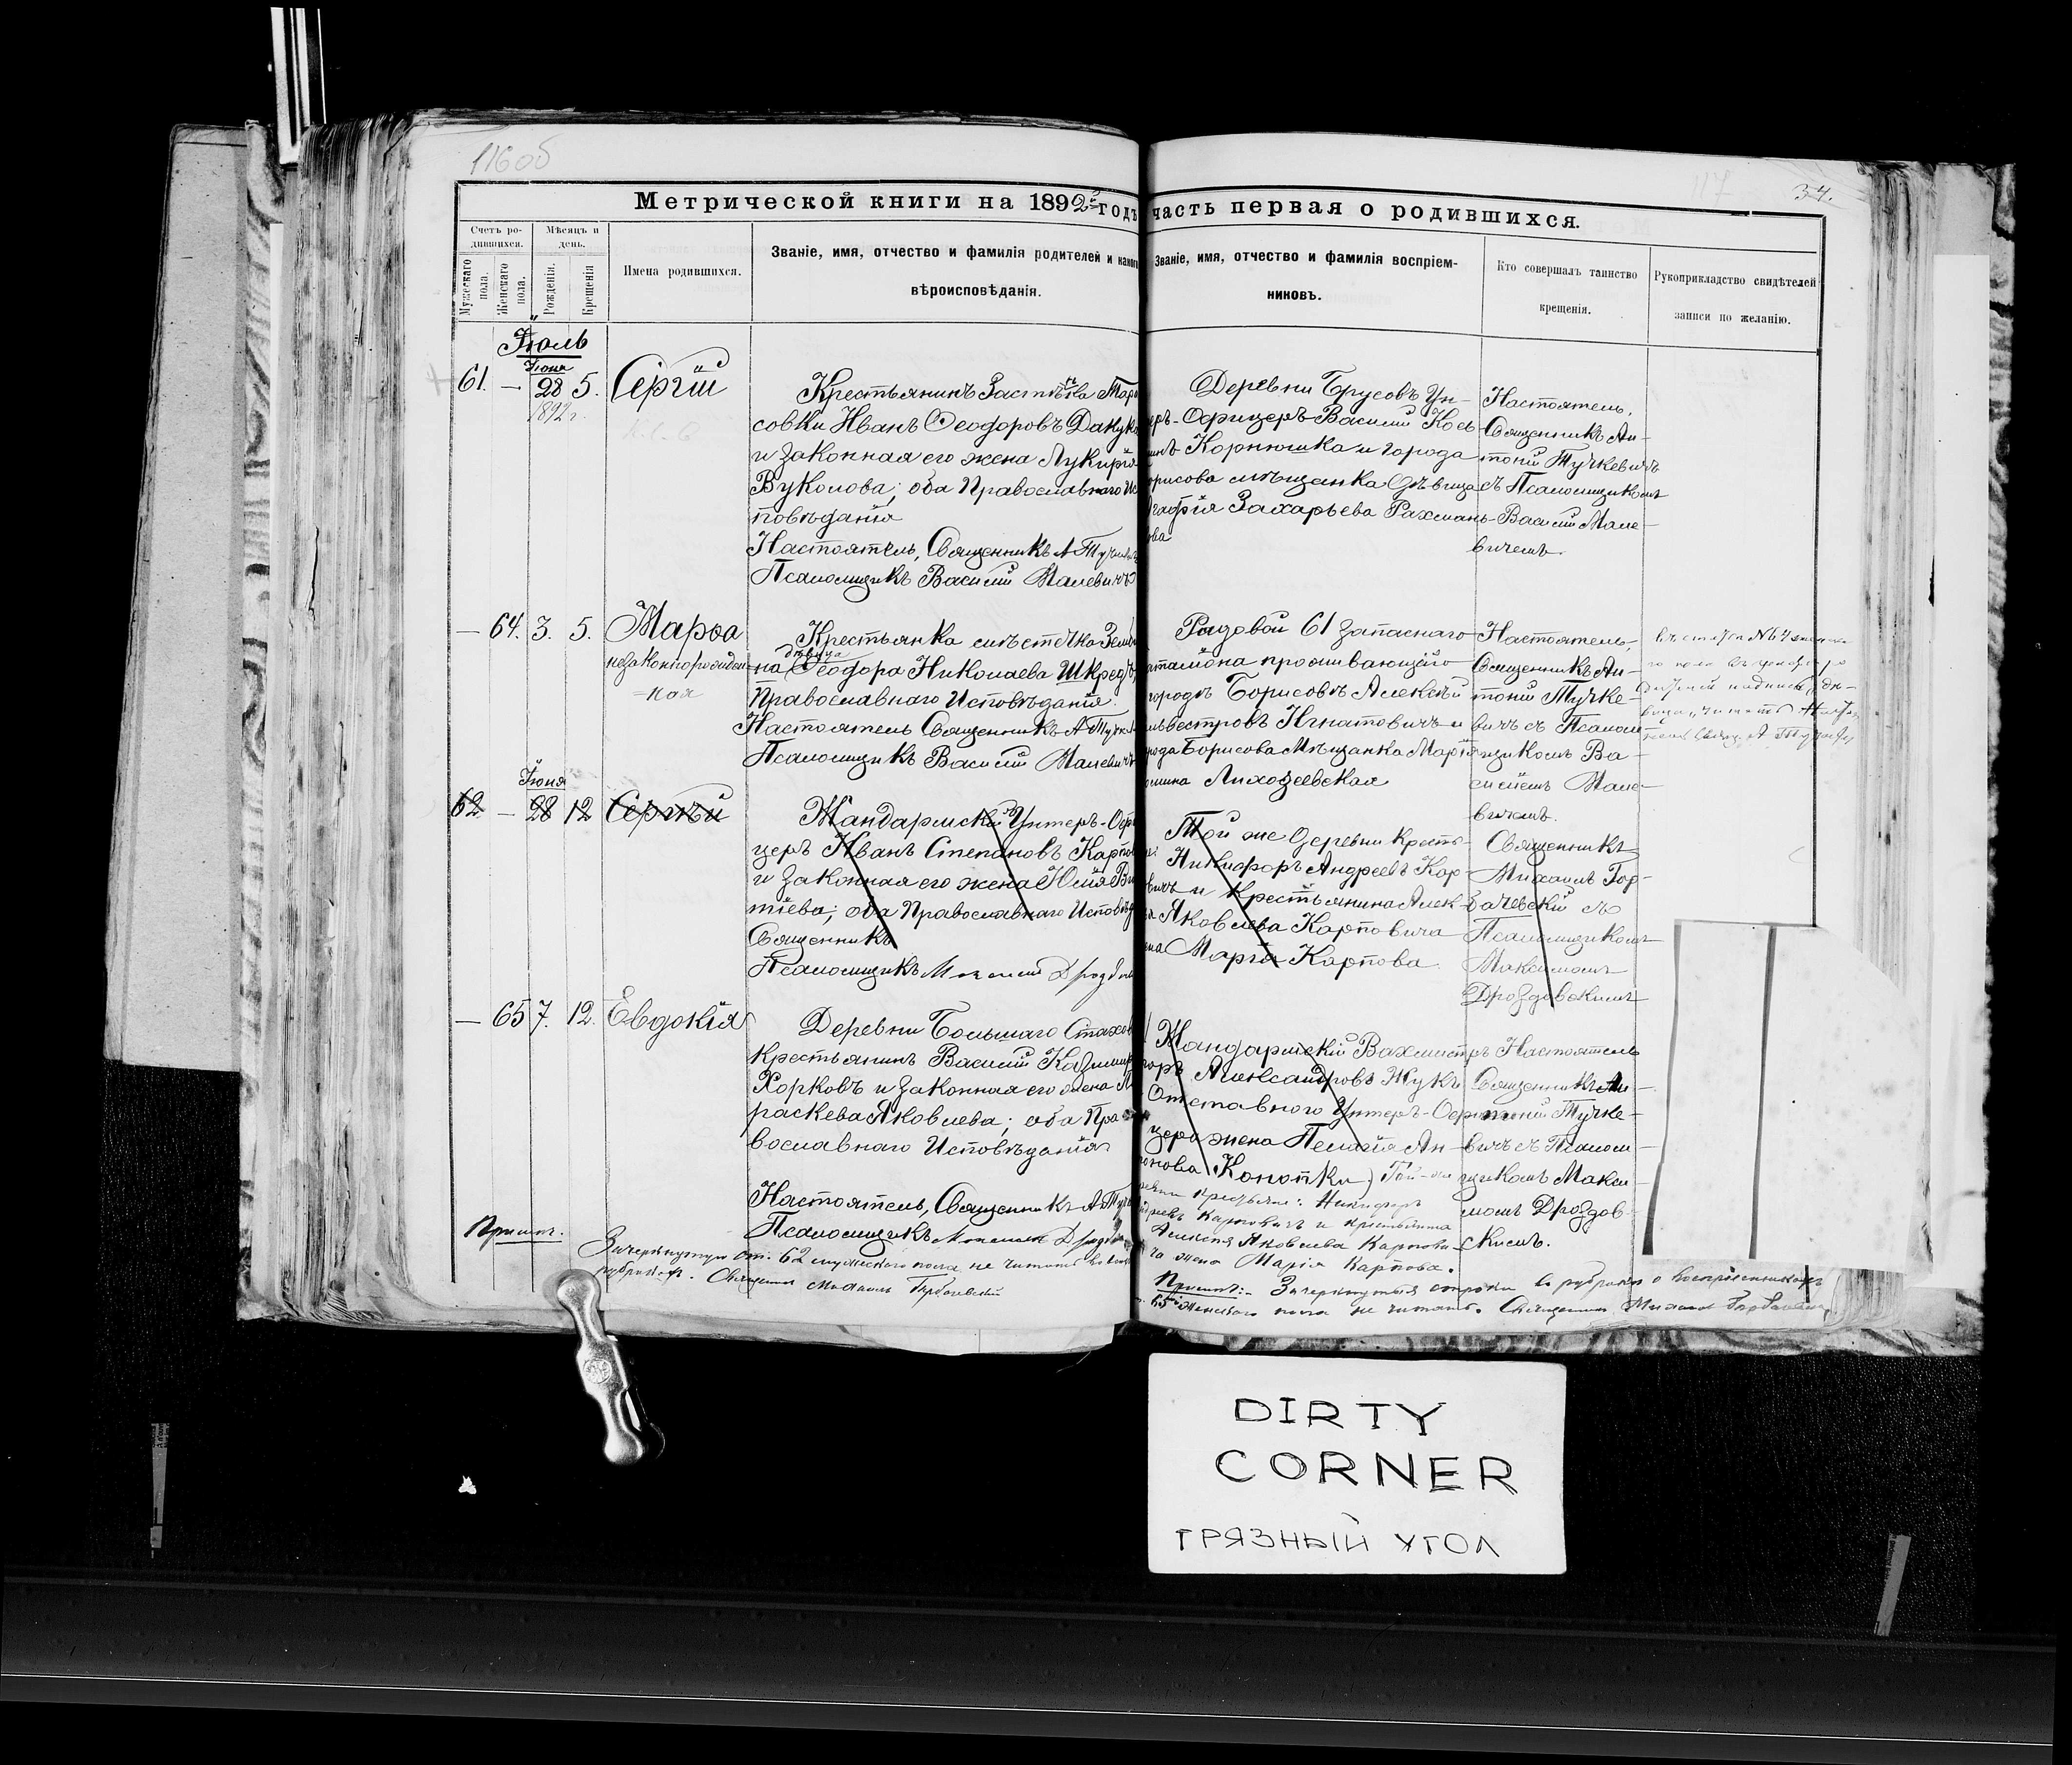 116 об
117
34.
Метрической книги на 1892й годъ часть первая о родившихся.
Счетъ ро-
дившихся.
Мѣсяцъ и
день.
Мужескаго пола.
Женскаго пола.
Рожденія.
Крещенія
Имена родившихся.
Званіе, имя, отчество и фамилія родителей и какого
вѣроисповѣданія.
Званіе, имя, отчество и фамилія воспріем-
никовъ.
Кто совершалъ таинство
крещенія.
Рукоприкладство свидѣтелей
записи по желанію.
Іюль
61. — Іюня 28 5. Сергій
1892 г.
Крестьянинъ Застѣнка Тар
совки Иванъ Ѳеодоровъ Дакук
и законная его жена Лукирія
Вуколова; оба Православнаго Ис
повѣданія
Настоятель, Священникъ А Тучкевич
Псаломщикъ Василій Малевичъ
Деревни Брусовъ Ун-
ръ-Офицеръ Василій Кось-
инъ Корнюшка и города
орисова мѣщанка дѣвица
гафія Захарьева Рахмань-
ова
Настоятель,
Священникъ Ан-
тоній Тучкевичъ
съ Псаломщикомъ
Василій Мале-
вичемъ.
— 64. 3. 5. Марѳа
незаконнорожден-
-ная
Крестьянка мѣстечка Земб
на дѣвица Ѳеодора Николаева Шкред
Православнаго Исповѣданія.
Настоятель Священникъ А Тучк
Псаломщикъ Василій Малевичъ
Рядовой 61 запаснаго
аталіона проживающій
городѣ Борисовѣ Алексѣй
ильвестровъ Игнатовичъ и
рода Борисова Мѣщанка Марія
омина Лиходзевская
Настоятель,
Священникъ Ан-
тоній Тучке-
вичъ съ Псалом-
щикомъ Ва-
силіемъ Мале-
вичемъ.
62 — Іюня 28 12 Сергѣй
Жандармскій Унтеръ-Офи
церъ Иванъ Степановъ Карпо
и законная его жена Юлія Ви
тіева; оба Православнаго Исповѣд
Священникъ
Псаломщикъ
Той же деревни крест-
Никифоръ Андреевъ Кар-
вичъ и Крестьянина Алек-
Яковлева Карповича
ена Марія Карпова.
Священникъ
Михаилъ Гор-
бачевскій съ
Псаломщикомъ
Максимомъ
Дроздовскимъ
— 65 7. 12. Евдокія
Деревни Большаго Стахов
Крестьянинъ Василій Казимир
Хорковъ и законная его жена П
раскева Яковлева; оба Пра-
вославнаго Исповѣданія
Настоятель, Священникъ А Туч
Псаломщикъ
Жандармскій Вахмистръ
горъ Александровъ Жукъ
Отставного Унтеръ-Офи
цера жена Пелагія Ан-
онова Конопки) Той-же
ревни крестьяне: Никифоръ
дреевъ Карповичъ и крестьянина
Алексѣя Яковлева Карпови-
ча жена Марія Карпова.
Настоятель
Священникъ Ан-
тоній Тучке-
вичъ съ Псалом-
щикомъ Макси-
момъ Дроздов-
скимъ.
Примѣч.
Зачеркнутую ст. 62 мужескаго пола не читать во всѣхъ
рубрикахъ. Священникъ Михаилъ Горбачевскій
Примѣч:- Зачеркнутыя строки въ рубрикѣ о воспріемникахъ
65 женскаго пола не читать. Священникъ Михаилъ Горбачевскій
DIRTY
CORNER
ГРЯЗНЫЙ УГОЛ